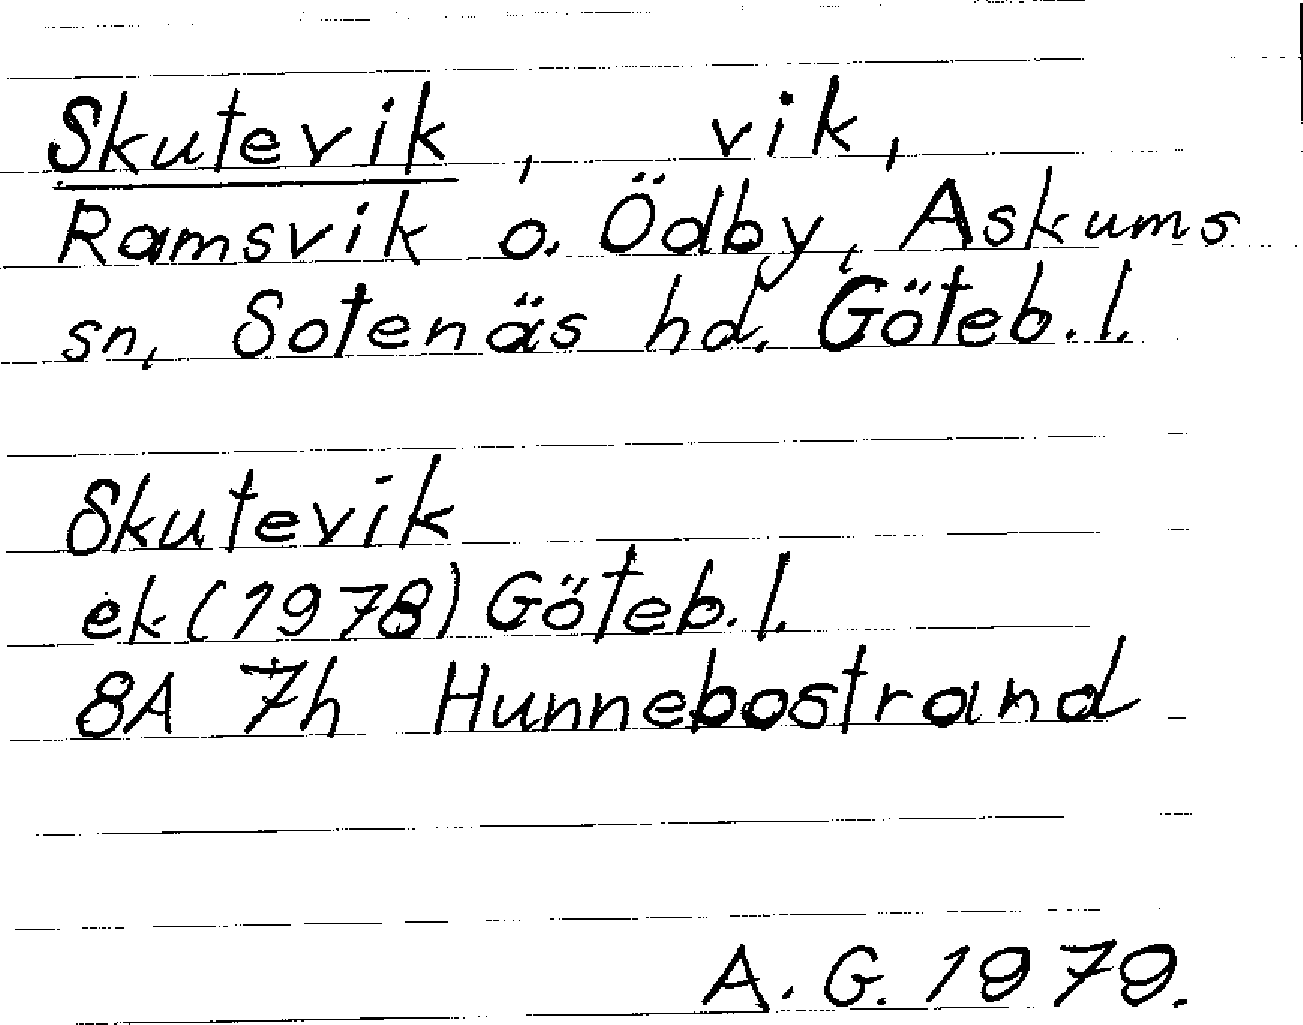 Skutevik, vik,
Ramsvik o. Ödby, Askums
sn, Sotenäs hd. Göteb. l.
Skutevik
ek (1978) Göteb. l.
8A 7h Hunnebostrand
A. G. 1979.